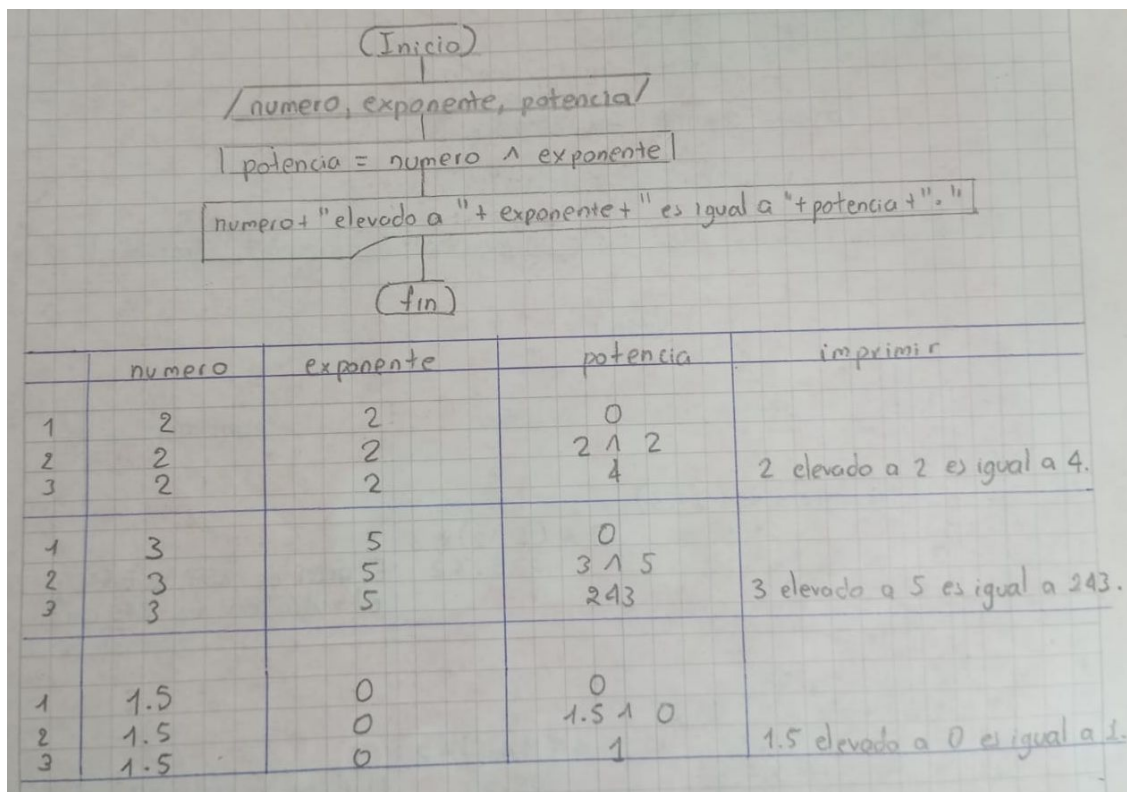 Inicio
numero, exponente, potencia
potencia = numero ^ exponente
numero+ "elevado a "+ exponente+" es igual a "+potencia+"."
fin
numero exponente potencia imprimir
1 2 2 0
2 2 2 2 ^ 2
3 2 2 4 2 elevado a 2 es igual a 4.
1 3 5 0
2 3 5 3 ^ 5
3 3 5 243 3 elevado a 5 es igual a 243.
1 1.5 0 0
2 1.5 0 1.5 ^ 0
3 1.5 0 1 1.5 elevado a 0 es igual a 1.